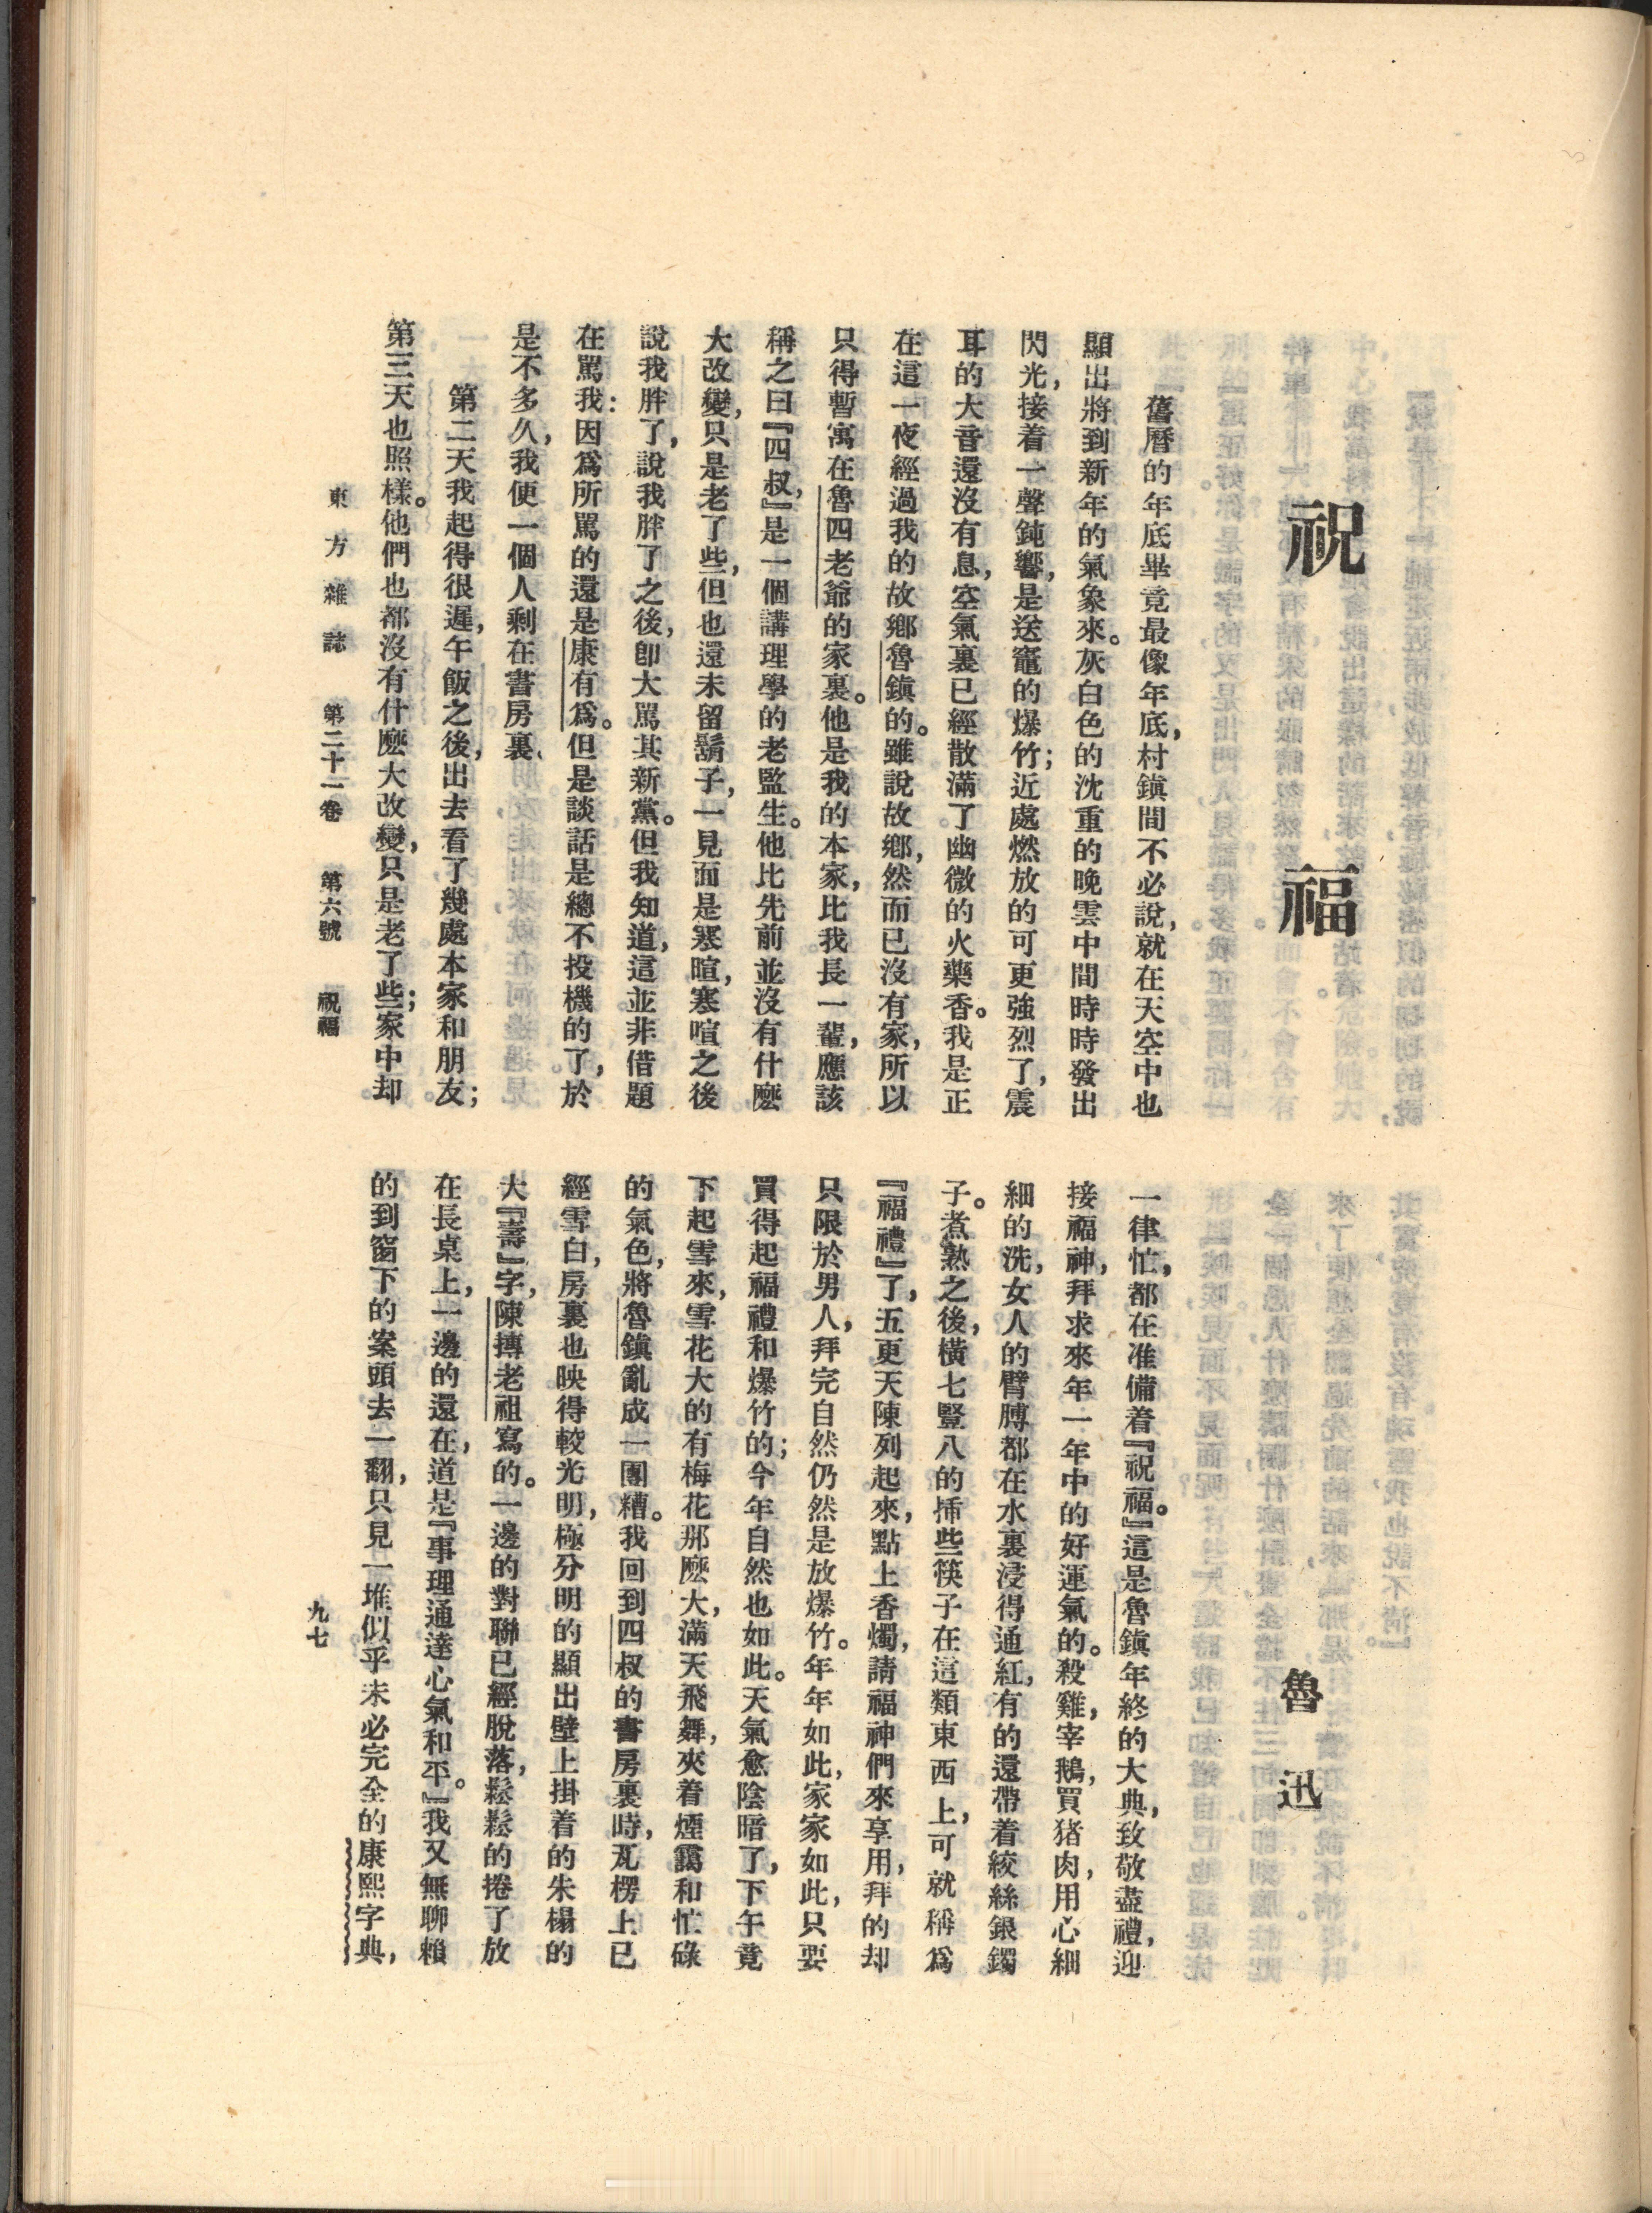 祝福
魯迅
舊曆的年底畢竟最像年底,村鎮間不必說,就在天空中也
顯出將到新年的氣象來。灰白色的沈重的晚雲中間時時發出
閃光,接着一聲鈍響,是送竈的爆竹;近處燃放的可更強烈了,震
耳的大音還沒有息,空氣裏已經散滿了幽微的火藥香。我是正
在這一夜經過我的故鄉魯鎮的。雖說故鄉,然而已沒有家,所以
只得暫寓在魯四老爺的家裏。他是我的本家,比我長一輩,應該
稱之曰『四叔,』是一個講理學的老監生。他比先前並沒有什麼
大改變,只是老了些,但也還未留鬍子,一見面是寒暄,寒暄之後
說我胖了,說我胖了之後,卽大罵其新黨。但我知道,這並非借題
在罵我:因爲所罵的還是康有爲。但是談話是總不投機的了,於
是不多久,我便一個人剩在書房裏、
第二天我起得很遲,午飯之後,出去看了幾處本家和朋友;
第三天也照樣。他們也都沒有什麼大改變,只是老了些;家中却
一律忙,都在准備着『祝福。』這是魯鎮年終的大典,致敬盡禮,迎
接福神,拜求來年一年中的好運氣的。殺雞,宰鵝,買猪肉,用心細
細的洗,女人的臂膊都在水裏浸得通紅,有的還帶着絞絲銀鐲
子。煮熟之後,橫七豎八的揷些筷子在這類東西上,可就稱爲
『福禮』了,五更天陳列起來,點上香燭,請福神們來享用,拜的却
只限於男人,拜完自然仍然是放爆竹。年年如此,家家如此,只要
買得起福禮和爆竹的;今年自然也如此。天氣愈陰暗了,下午竟
下起雪來,雪花大的有梅花那麼大,滿天飛舞,夾着煙靄和忙碌
的氣色,將魯鎮亂成一團糟。我回到四叔的書房裏時,瓦楞上已
經雪白,房裏也映得較光明,極分明的顯出壁上掛着的朱榻的
大『壽』字,陳摶老祖寫的。一邊的對聯已經脫落,鬆鬆的捲了放
在長桌上,一邊的還在,道是『事理通達心氣和平。』我又無聊賴
的到窗下的案頭去一翻,只見一堆似乎未必完全的康熙字典,
東方雜誌 第二十一卷 第六號 祝福
九七